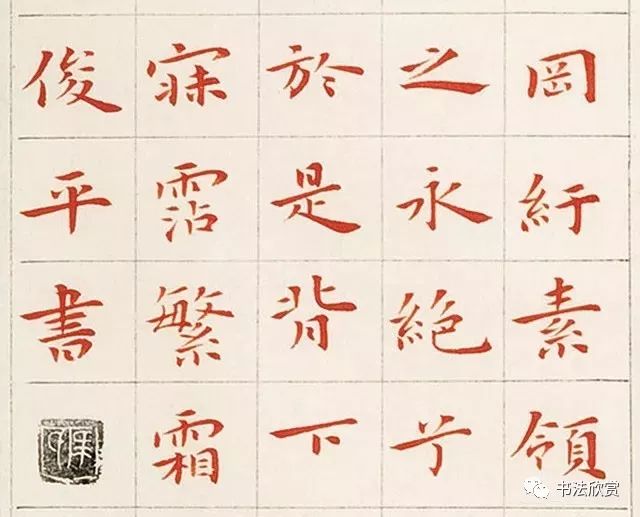 岡紆素領
之永絕兮
於是背下
寐霑繁霜
俊平書
书法欣赏